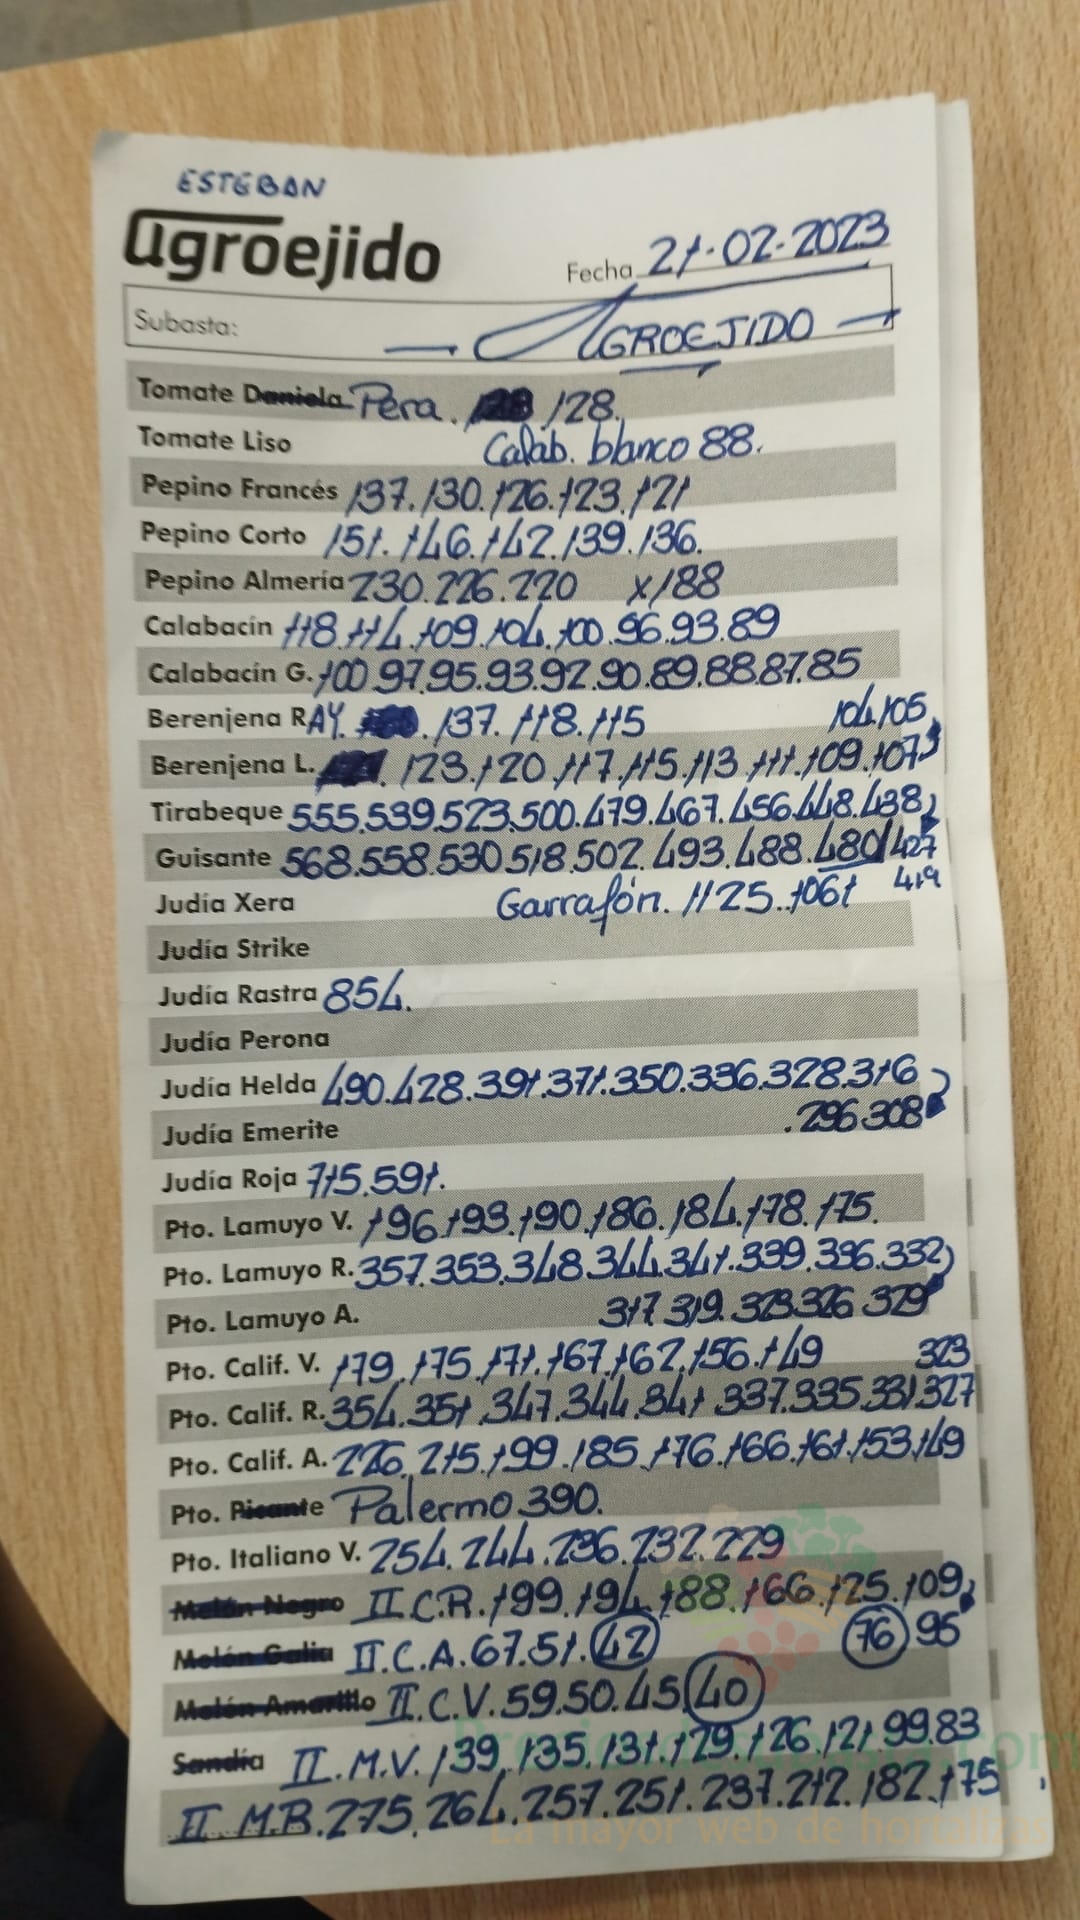 ESTEBAN
agroejido
Fecha 21-02-2023
Subasta: — AGROEJIDO —
Tomate Daniela Pera. 128.
Tomate Liso Calab. blanco 88.
Pepino Francés 137.130.126.123.121
Pepino Corto 151.146.142.139.136.
Pepino Almería 230.226.220 x188
Calabacín 118.114.109.104.100.96.93.89
Calabacín G. 100.97.95.93.92.90.89.88.87.85
Berenjena RAY. 137.118.115 104.105
Berenjena L. 123.120.117.115.113.111.109.107
Tirabeque 555.539.523.500.479.467.456.448.438
Guisante 568.558.530.518.502.493.488.480/427
419
Judía Xera Garrafón. 1125.1061
Judía Strike
Judía Rastra 854.
Judía Perona
Judía Helda 490.428.391.371.350.336.328.316
Judía Emerite .296.308
Judía Roja 715.591.
Pto. Lamuyo V. 196.193.190.186.184.178.175.
Pto. Lamuyo R. 357.353.348.344.341.339.336.332
Pto. Lamuyo A. 317.319.323.326.329
Pto. Calif. V. 179.175.171.167.162.156.149 323
Pto. Calif. R. 354.351.347.344.341.337.335.331.327
Pto. Calif. A. 226.215.199.185.176.166.161.153.149
Pto. Picante Palermo 390.
Pto. Italiano V. 254.244.236.232.229
Melón Negro II.C.R.199.194.188.166.125.109
Melón Galia II.C.A.67.51.42 76 95
Melón Amarillo II.C.V.59.50.45.40
Sandía II.M.V.139.135.131.129.126.121.99.83
II M.R.275.264.257.251.237.212.182.175
La mayor web de hortalizas